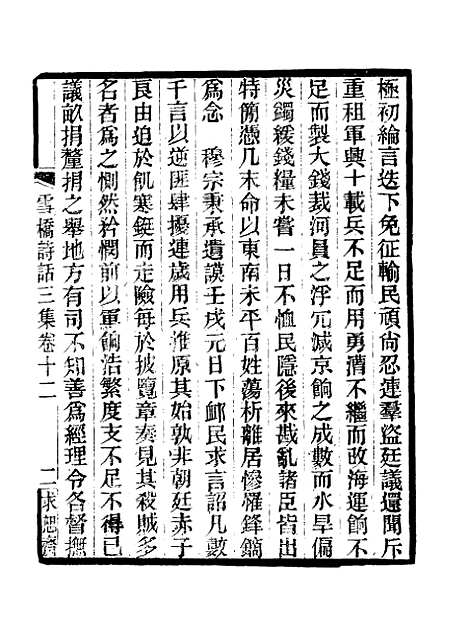 極初綸言迭下免征輸民頑尙忍連羣盜廷議還聞斥
重租軍興十載兵不足而用勇漕不繼而改海運餉不
足而製大錢裁河員之浮冗減京餉之成數而水旱偏
災蠲緩錢糧未嘗一日不恤民隱後來戡亂諸臣皆出
特簡憑几末命以東南未平百姓蕩析離居慘罹鋒鏑
爲念　穆宗秉承遺謨壬戌元日下䘏民求言詔凡數
千言以逆匪肆擾連歲用兵推原其始孰非朝廷赤子
良由迫於飢寒鋌而走險每於披覽章奏見其殺賊多
名者爲之惻然矜憫前以軍餉浩繁度支不足不得已
議畝捐釐捐之舉地方有司不知善爲經理令各督撫
雪橋詩話三集卷十二　二　求恕齋